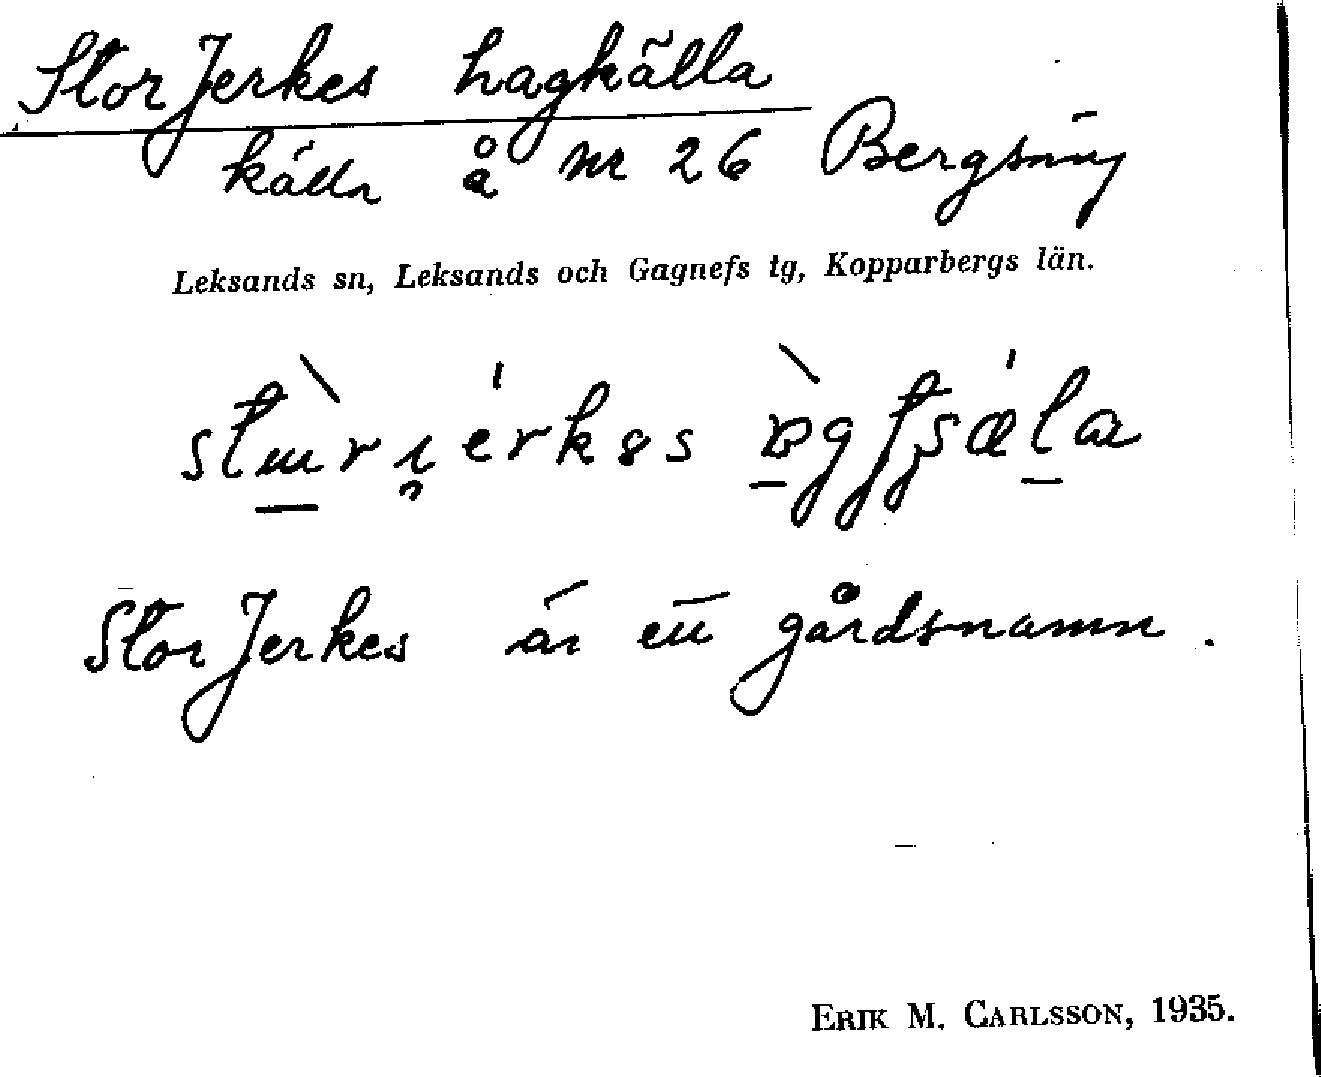 Stor Jerkes hagkälla
källa å nr 26 Bergsäng
Leksands sn, Leksands och Gagnefs tg, Kopparbergs län.
Stor Jerkes är ett gårdsnamn.
ERIK M. CARLSSON, 1935.